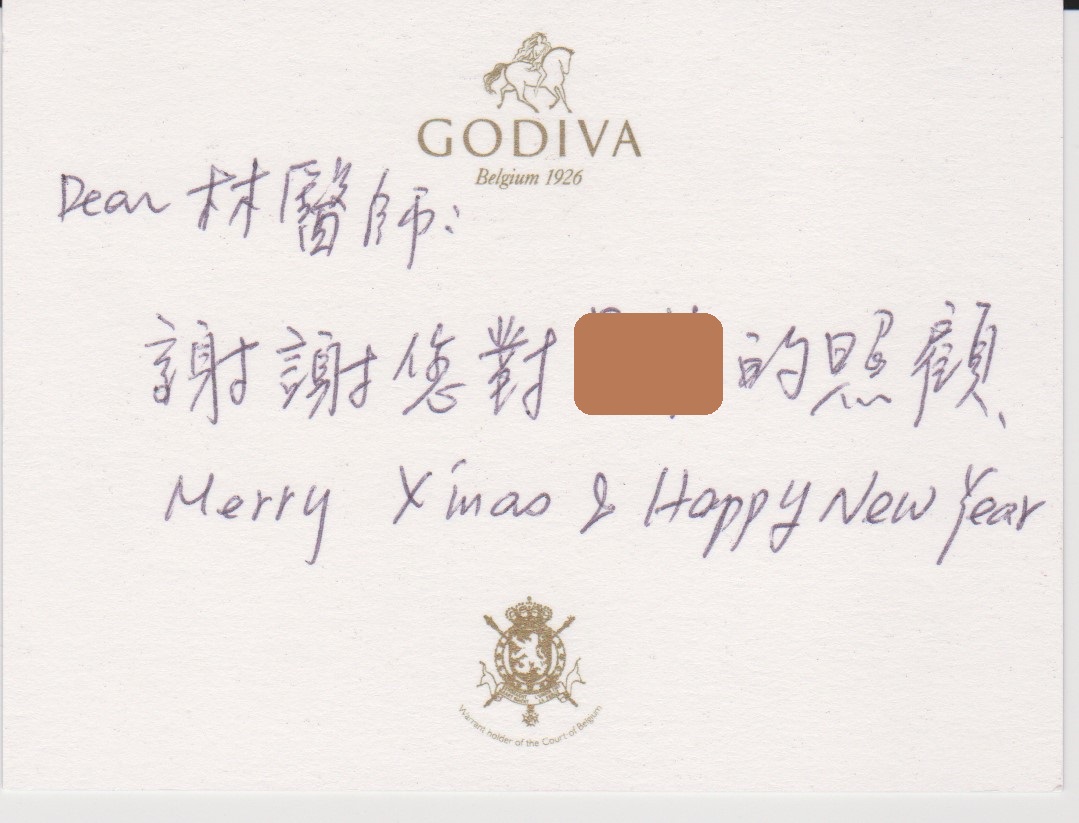 GODIVA
Belgium 1926
Dear 林醫師:
謝謝您對 的照顧、
Merry X'mas & Happy New Year
Warrant holder of the Court of Belgium